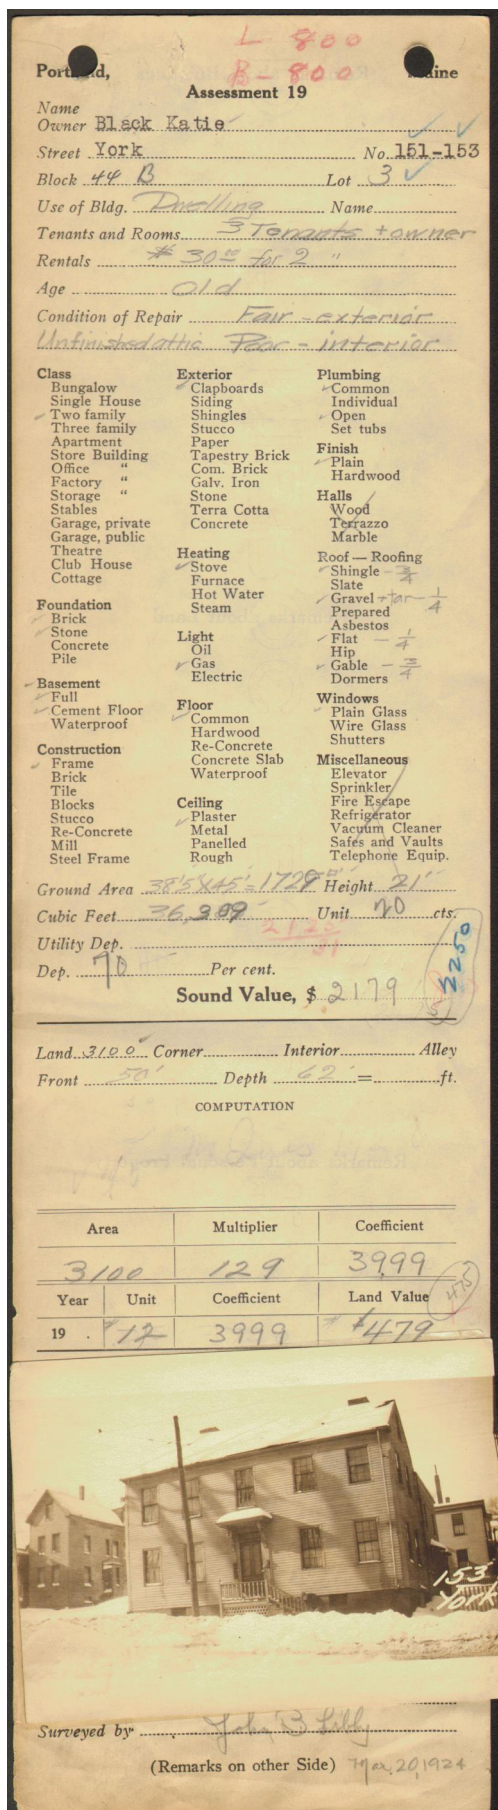 L - 800
Portland, B - 800 Maine
Assessment 19
Name
Owner Black Katie
Street York No. 151-153
Block 44 B Lot 3
Use of Bldg. Dwelling Name
Tenants and Rooms 3 Tenants + owner
Rentals # 30 00 for 2 "
Age Old
Condition of Repair Fair - exterior
Unfinished attic Poor - interior
Class
Bungalow
Single House
Two family
Three family
Apartment
Store Building
Office "
Factory "
Storage "
Stables
Garage, private
Garage, public
Theatre
Club House
Cottage
Foundation
Brick
Stone
Concrete
Pile
Basement
Full
Cement Floor
Waterproof
Construction
Frame
Brick
Tile
Blocks
Stucco
Re-Concrete
Mill
Steel Frame
Exterior
Clapboards
Siding
Shingles
Stucco
Paper
Tapestry Brick
Com. Brick
Galv. Iron
Stone
Terra Cotta
Concrete
Heating
Stove
Furnace
Hot Water
Steam
Light
Oil
Gas
Electric
Floor
Common
Hardwood
Re-Concrete
Concrete Slab
Waterproof
Ceiling
Plaster
Metal
Panelled
Rough
Plumbing
Common
Individual
Open
Set tubs
Finish
Plain
Hardwood
Halls
Wood
Terrazzo
Marble
Roof — Roofing
Shingle - 3/4
Slate
Gravel + tar - 1/4
Prepared
Asbestos
Flat - 1/4
Hip
Gable - 3/4
Dormers
Windows
Plain Glass
Wire Glass
Shutters
Miscellaneous
Elevator
Sprinkler
Fire Escape
Refrigerator
Vacuum Cleaner
Safes and Vaults
Telephone Equip.
Ground Area 38'5" x 45' = 1729 Height 21'
Cubic Feet 36,309 Unit 20 cts.
Utility Dep.
Dep. 70 Per cent.
2250
Sound Value, $ 2179
Land 3100 Corner Interior Alley
Front 50' Depth 62' = ft.
COMPUTATION
Area Multiplier Coefficient
3100 129 3999
475
Year Unit Coefficient Land Value
19 . 12 3999 $479
153
York
Surveyed by John B Libby
(Remarks on other Side) Mar. 20, 1924